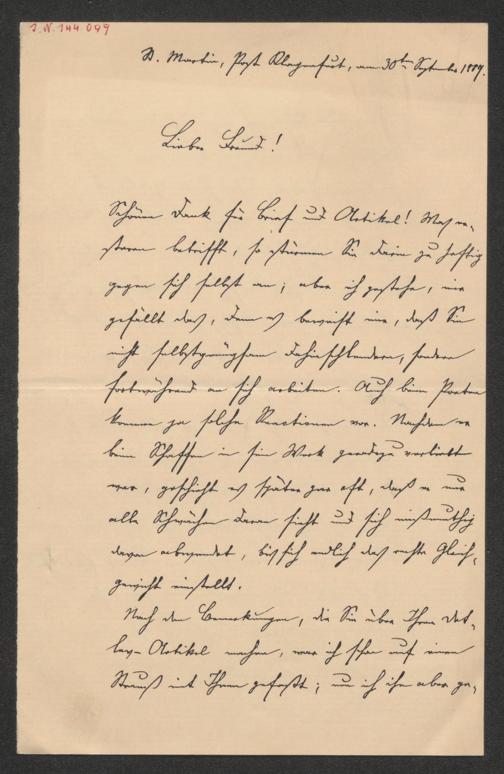 J. N. 144.099
St. Martin, Post Klagenfurt, am 30ten September 1889.
Lieber Freund!
Schönen Dank für Brief und Artikel! Was er-
steren betrifft, so stürmen Sie darin zu heftig
gegen sich selbst an; aber ich gestehe, mir
gefällt das, denn es beweist mir, daß Sie
nicht selbstgenügsam dahinschlendern, sondern
fortwährend an sich arbeiten. Auch beim Poeten
kommen ja solche Reactionen vor. Nachdem er
beim Schaffen in sein Werk geradezu verliebt
war, geschieht es später gar oft, daß er nur
alle Schwächen daran sieht und sich mißmuthig
davon abwendet, bis sich endlich das rechte Gleich-
gewicht einstellt.
Nach den Bemerkungen, die Sie über Ihren Det-
lev-Artikel machen, war ich schon auf einen
Strauß mit Ihnen gefaßt; nun ich ihn aber ge-